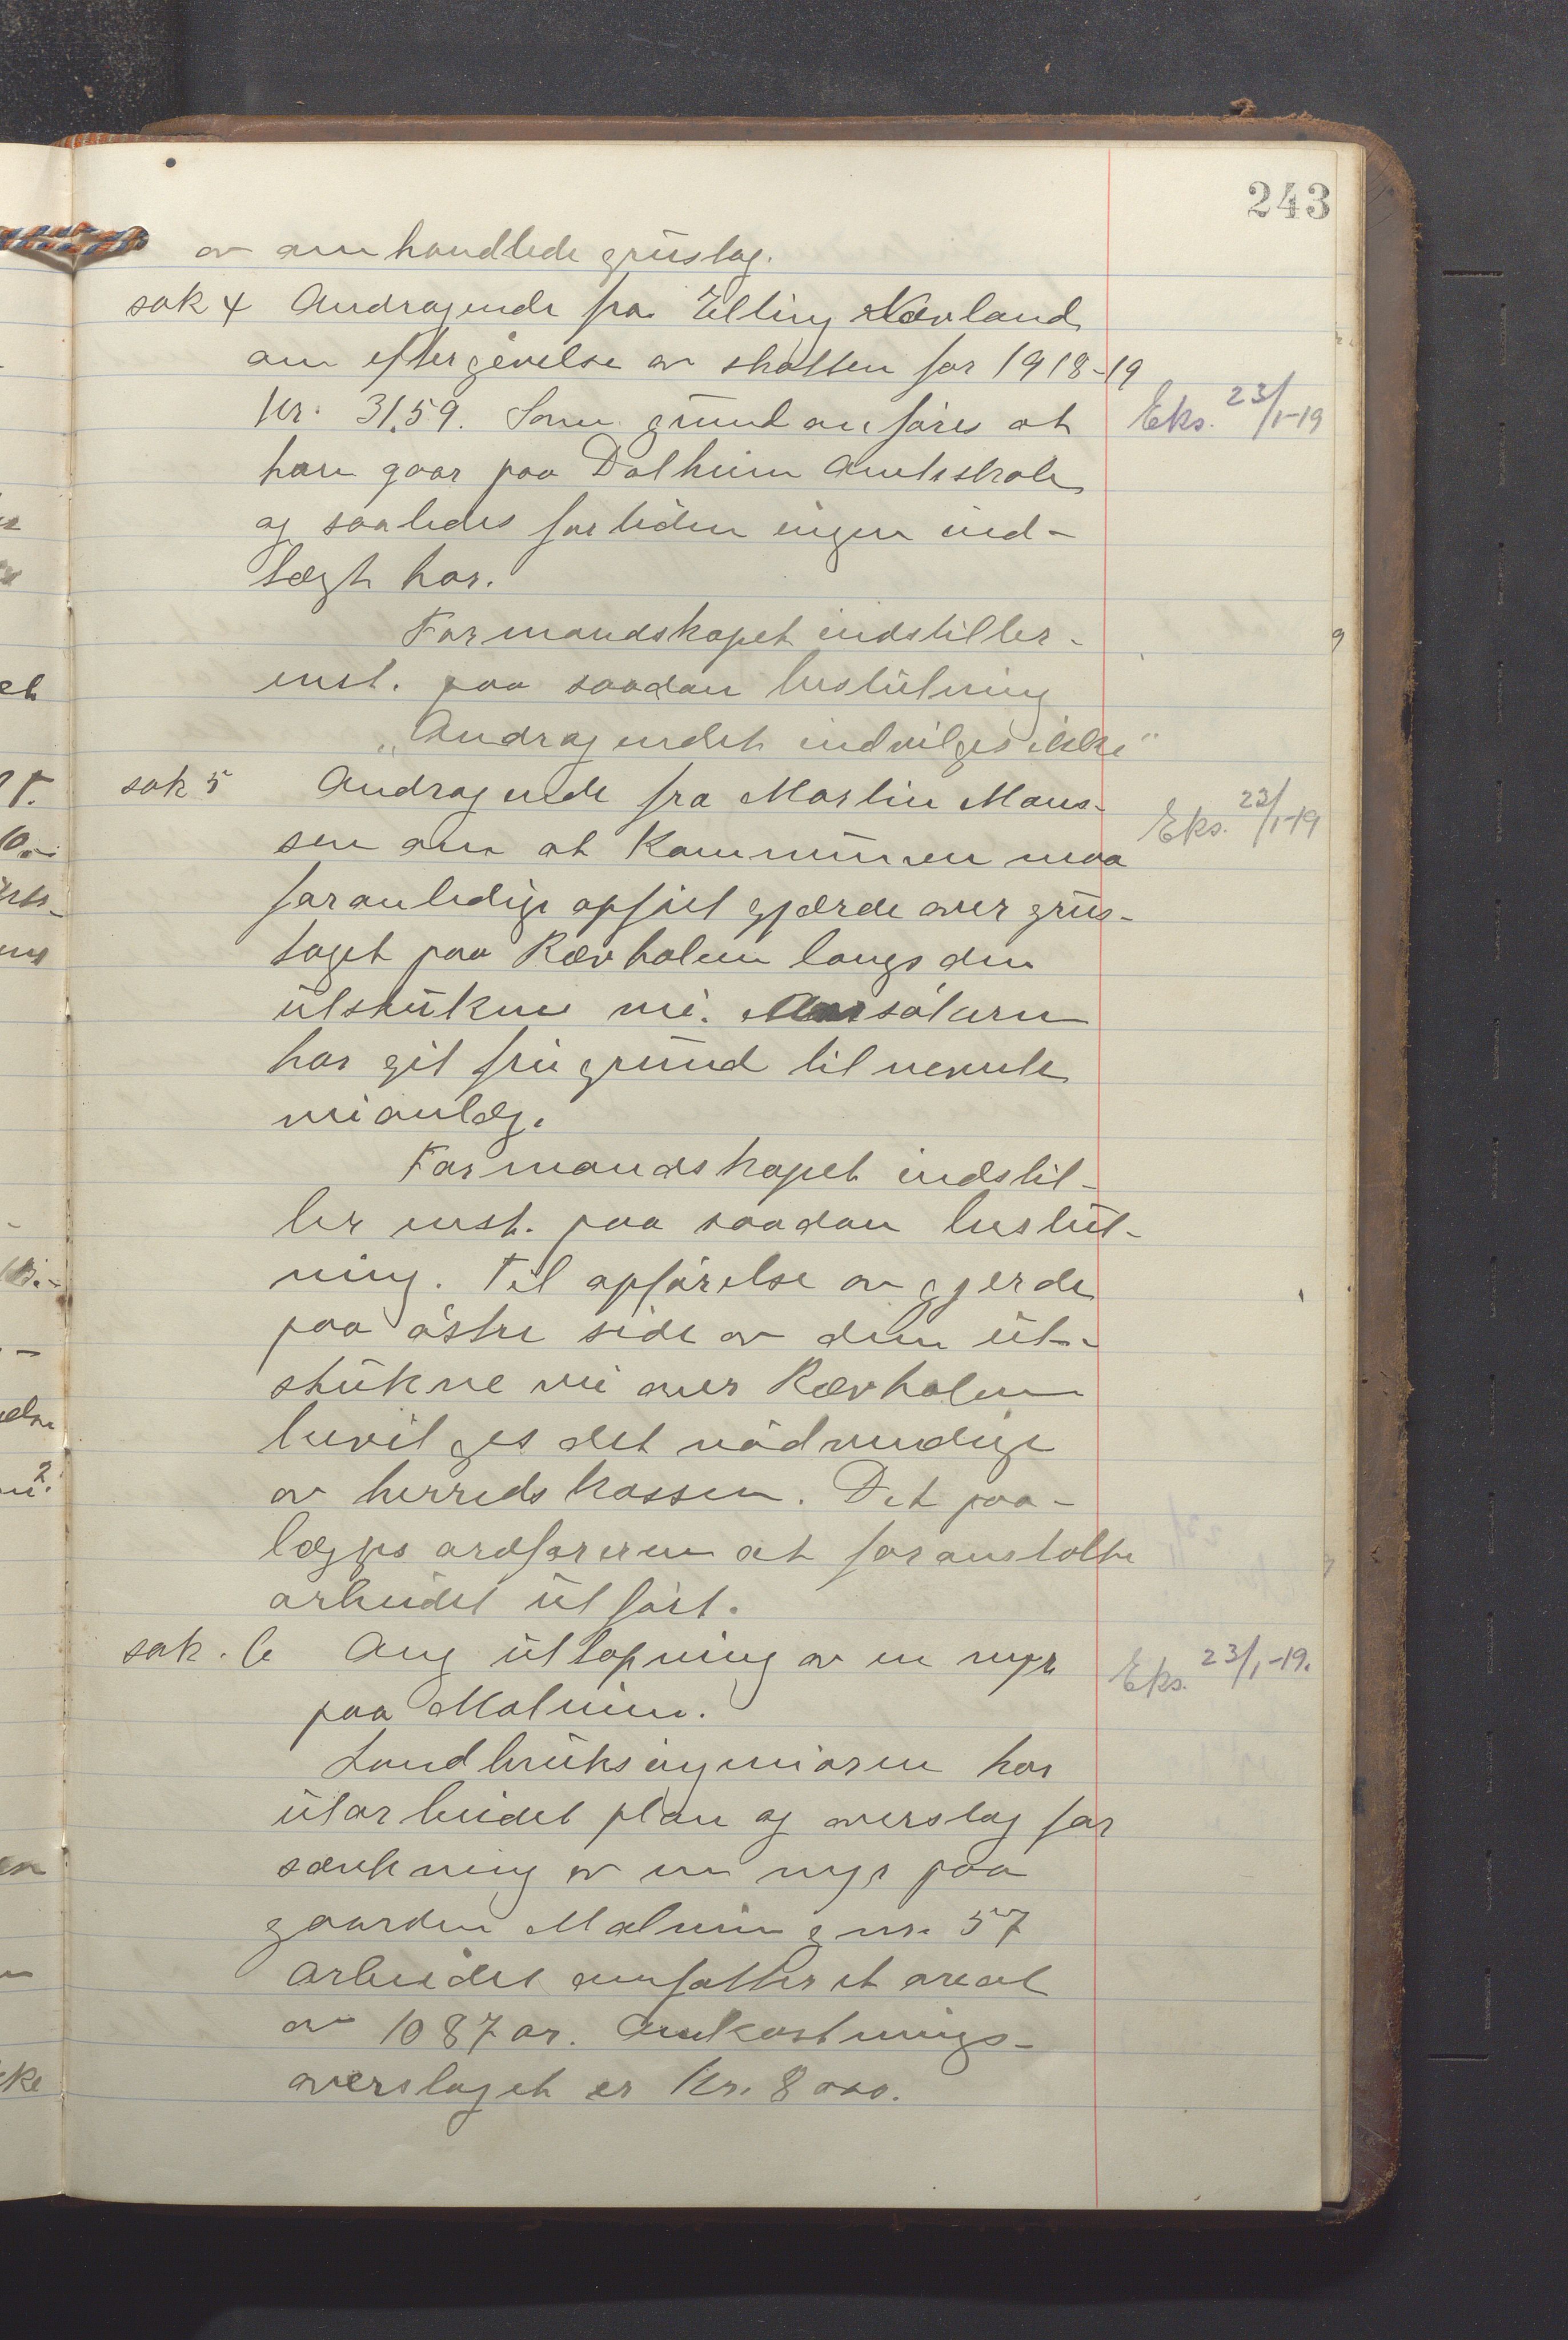 243
av omhandlede grustag.
sak 4 Andragende fra Elling Nævland
om eftergivelse av skatten for 1918-19
kr. 31,59. Som grund anføres at
Eks. 23/1-19
han gaar paa Dalheim Amtsskole
og saaledes for tiden ingen ind-
tægt har.
Formandskapet indstiller-
enst. paa saadan beslutning
„Andragendet indvilges ikke"
sak 5 Andragende fra Martin Maus-
Eks. 23/1-19
sen om at Kommunen maa
foranledige opført gjærde over grus-
taget paa Rævholen langs den
utstukne vei. Ansøkeren
har git fri grund til nevnte
veianlæg.
Formandskapet indstil-
ler enst. paa saadan beslut-
ning. Til opførelse av gjerde
paa østre side av den ut-
stukne vei over Rævholen
bevilges det nødvendige
av herredskassen. Det paa-
lægges ordføreren at foranstalte
arbeidet utført.
sak. 6 Ang uttapning av en myr
Eks. 23/1-19.
paa Malmin.
Landbruksingeniøren har
utarbeidet plan og overslag for
sænkning av en myr paa
gaarden Malmin g.nr. 57
Arbeidet omfatter et areal
av 1087 ar. Omkostnings-
overslaget er Kr. 8000.